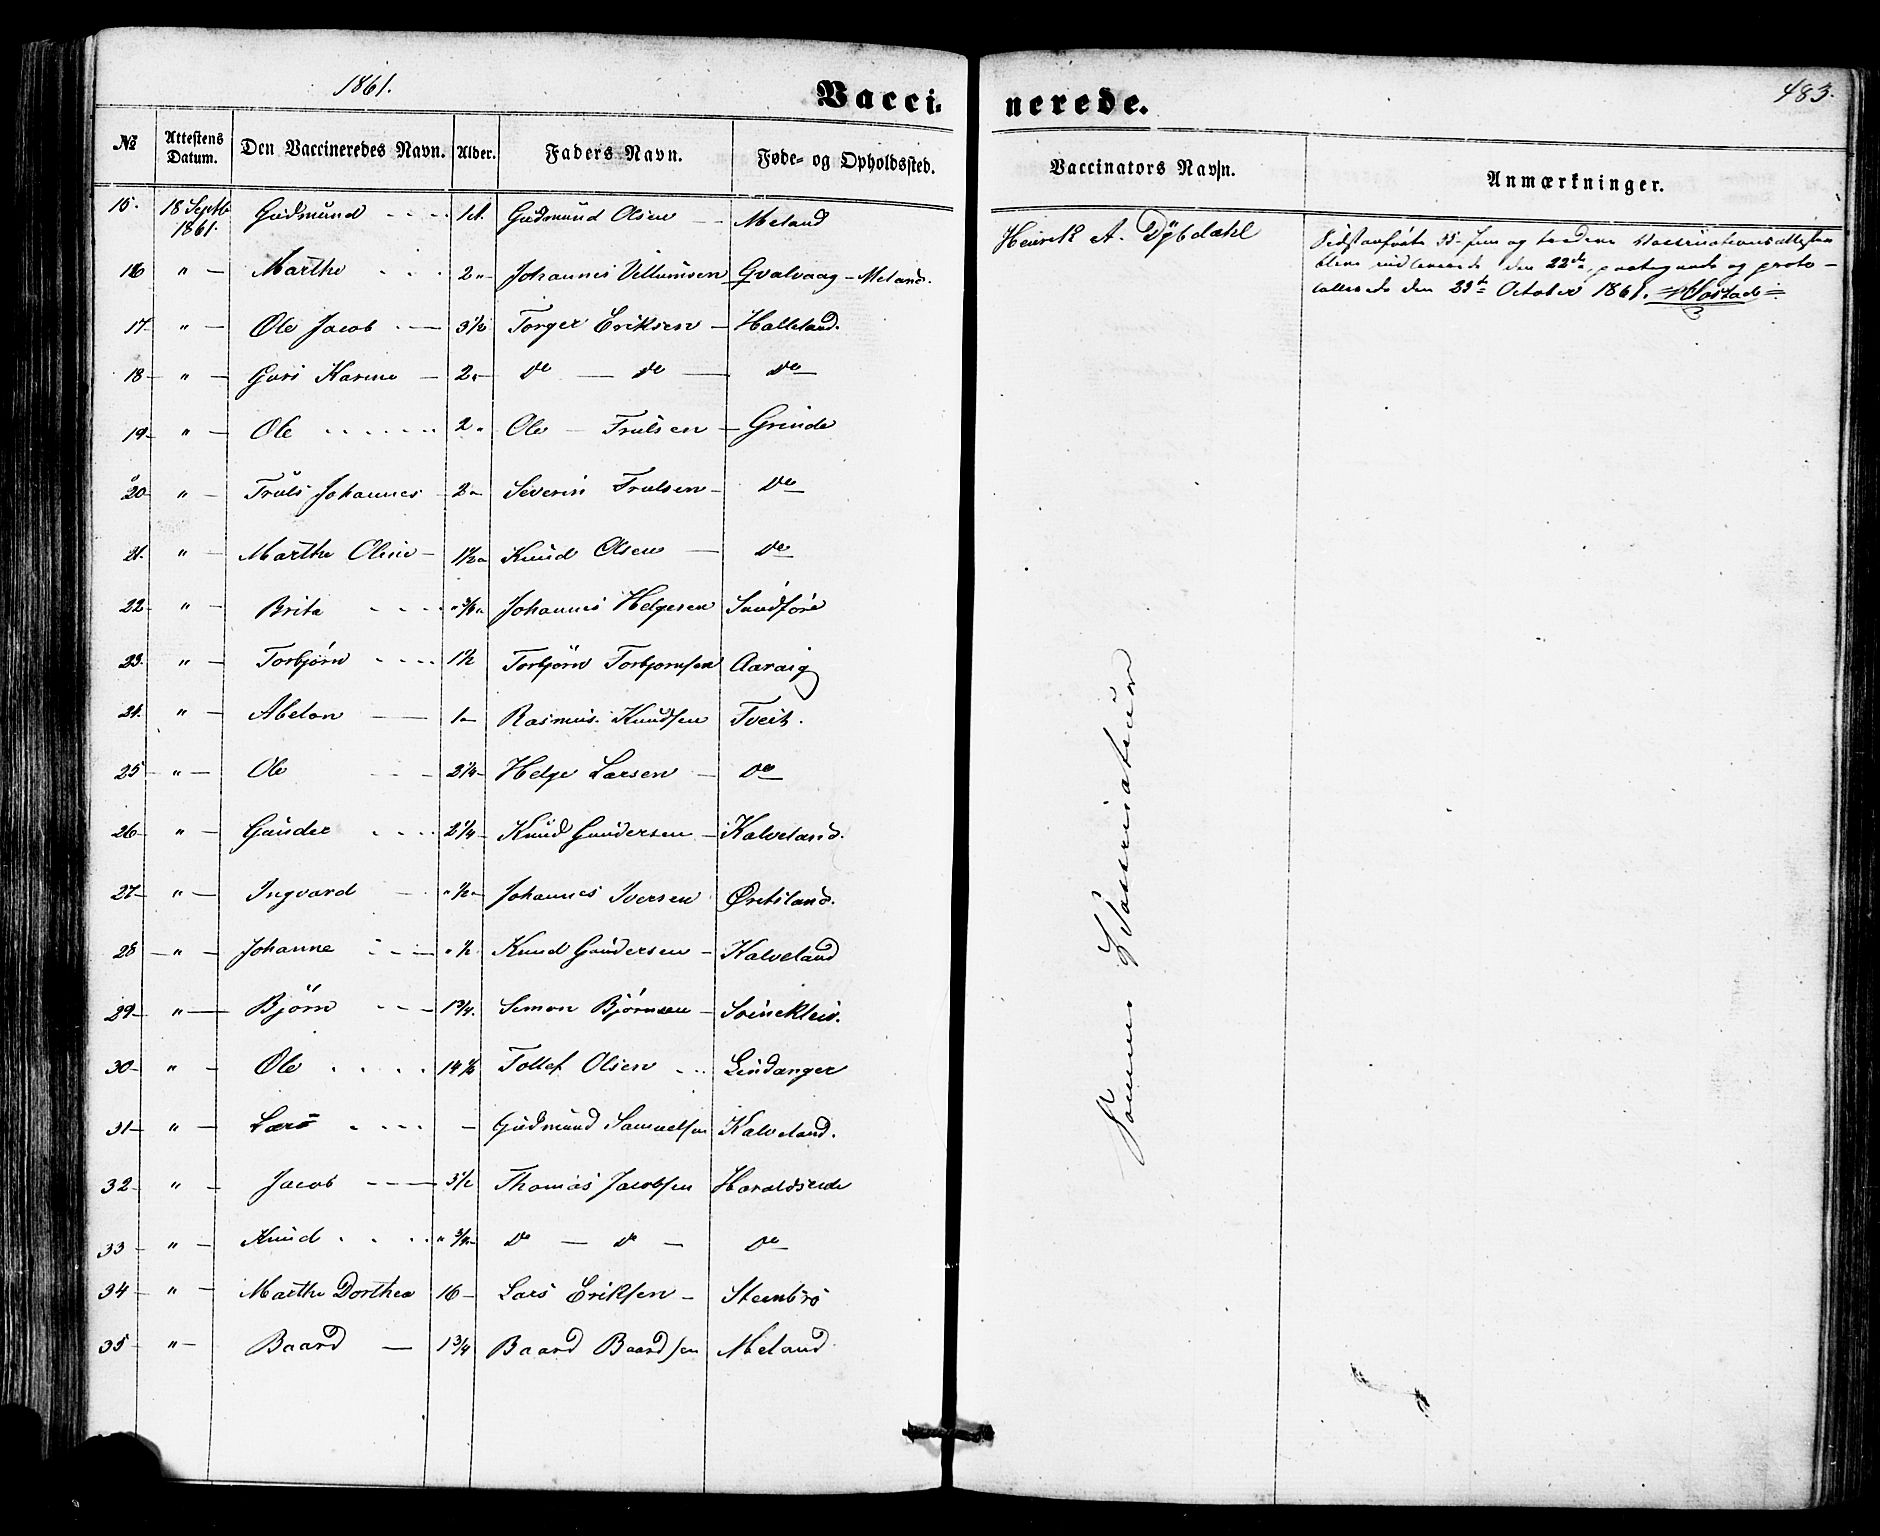 1861.
Vaccinerede.
483.
№ Attestens Datum. Den Vaccineredes Navn. Alder. Faders Navn. Føde- og Opholdssted. Vaccinators Navn. Anmærkninger.
15. 18 Septb 1861. Gudmund 1 Gudmund Olsen Meland Henrik A. Dybdahl
16 " Marthe 2 Johannes Villumsen Gvalvaag - Meland.
17 " Ole Jacob 3½ Torger Eriksen Halleland.
18 " Guri Karine 2 do do do
19 " Ole 2 Ole Trulsen Grinde
20 " Truls Johannes 2 Severin Trulsen do
21. " Marthe Oline 1½ Knud Olsen do
22 " Brita " ¾ Johannes Helgesen Sundføre
23. " Torbjørn 1½ Torbjörn Torbjørnsen Aaraig
24. " Abelon 1 Rasmus Knudsen Tveit.
25 " Ole 2¼ Helge Larsen do
26 " Gunder 2¼ Knud Gundersen Kalveland.
27 " Ingvard " ½ Johannes Iversen Øvitsland.
28 " Johanne " ½ Knud Gundersen Kalveland
29 " Björn 1¾ Simon Björnsen Svineklev.
30 " Ole 14½ Tollef Olsen Lindanger
31 " Lars - Gudmund Samuelsen Kalveland.
32 " Jacob 3½ Thomas Jacobsen Haraldseide
33 " Knud " ¾ do do do
34 " Marthe Dorthea 16 Lars Eriksen Steinbrö
35 " Baard 1¾ Baard Baardsen Meland
Samme Vaccinateur
Sidstanførte 35- fem og tredive Vaccinationsattester
bleve indleverede den 22de, paategnede og proto-
collerede den 23de October 1861.